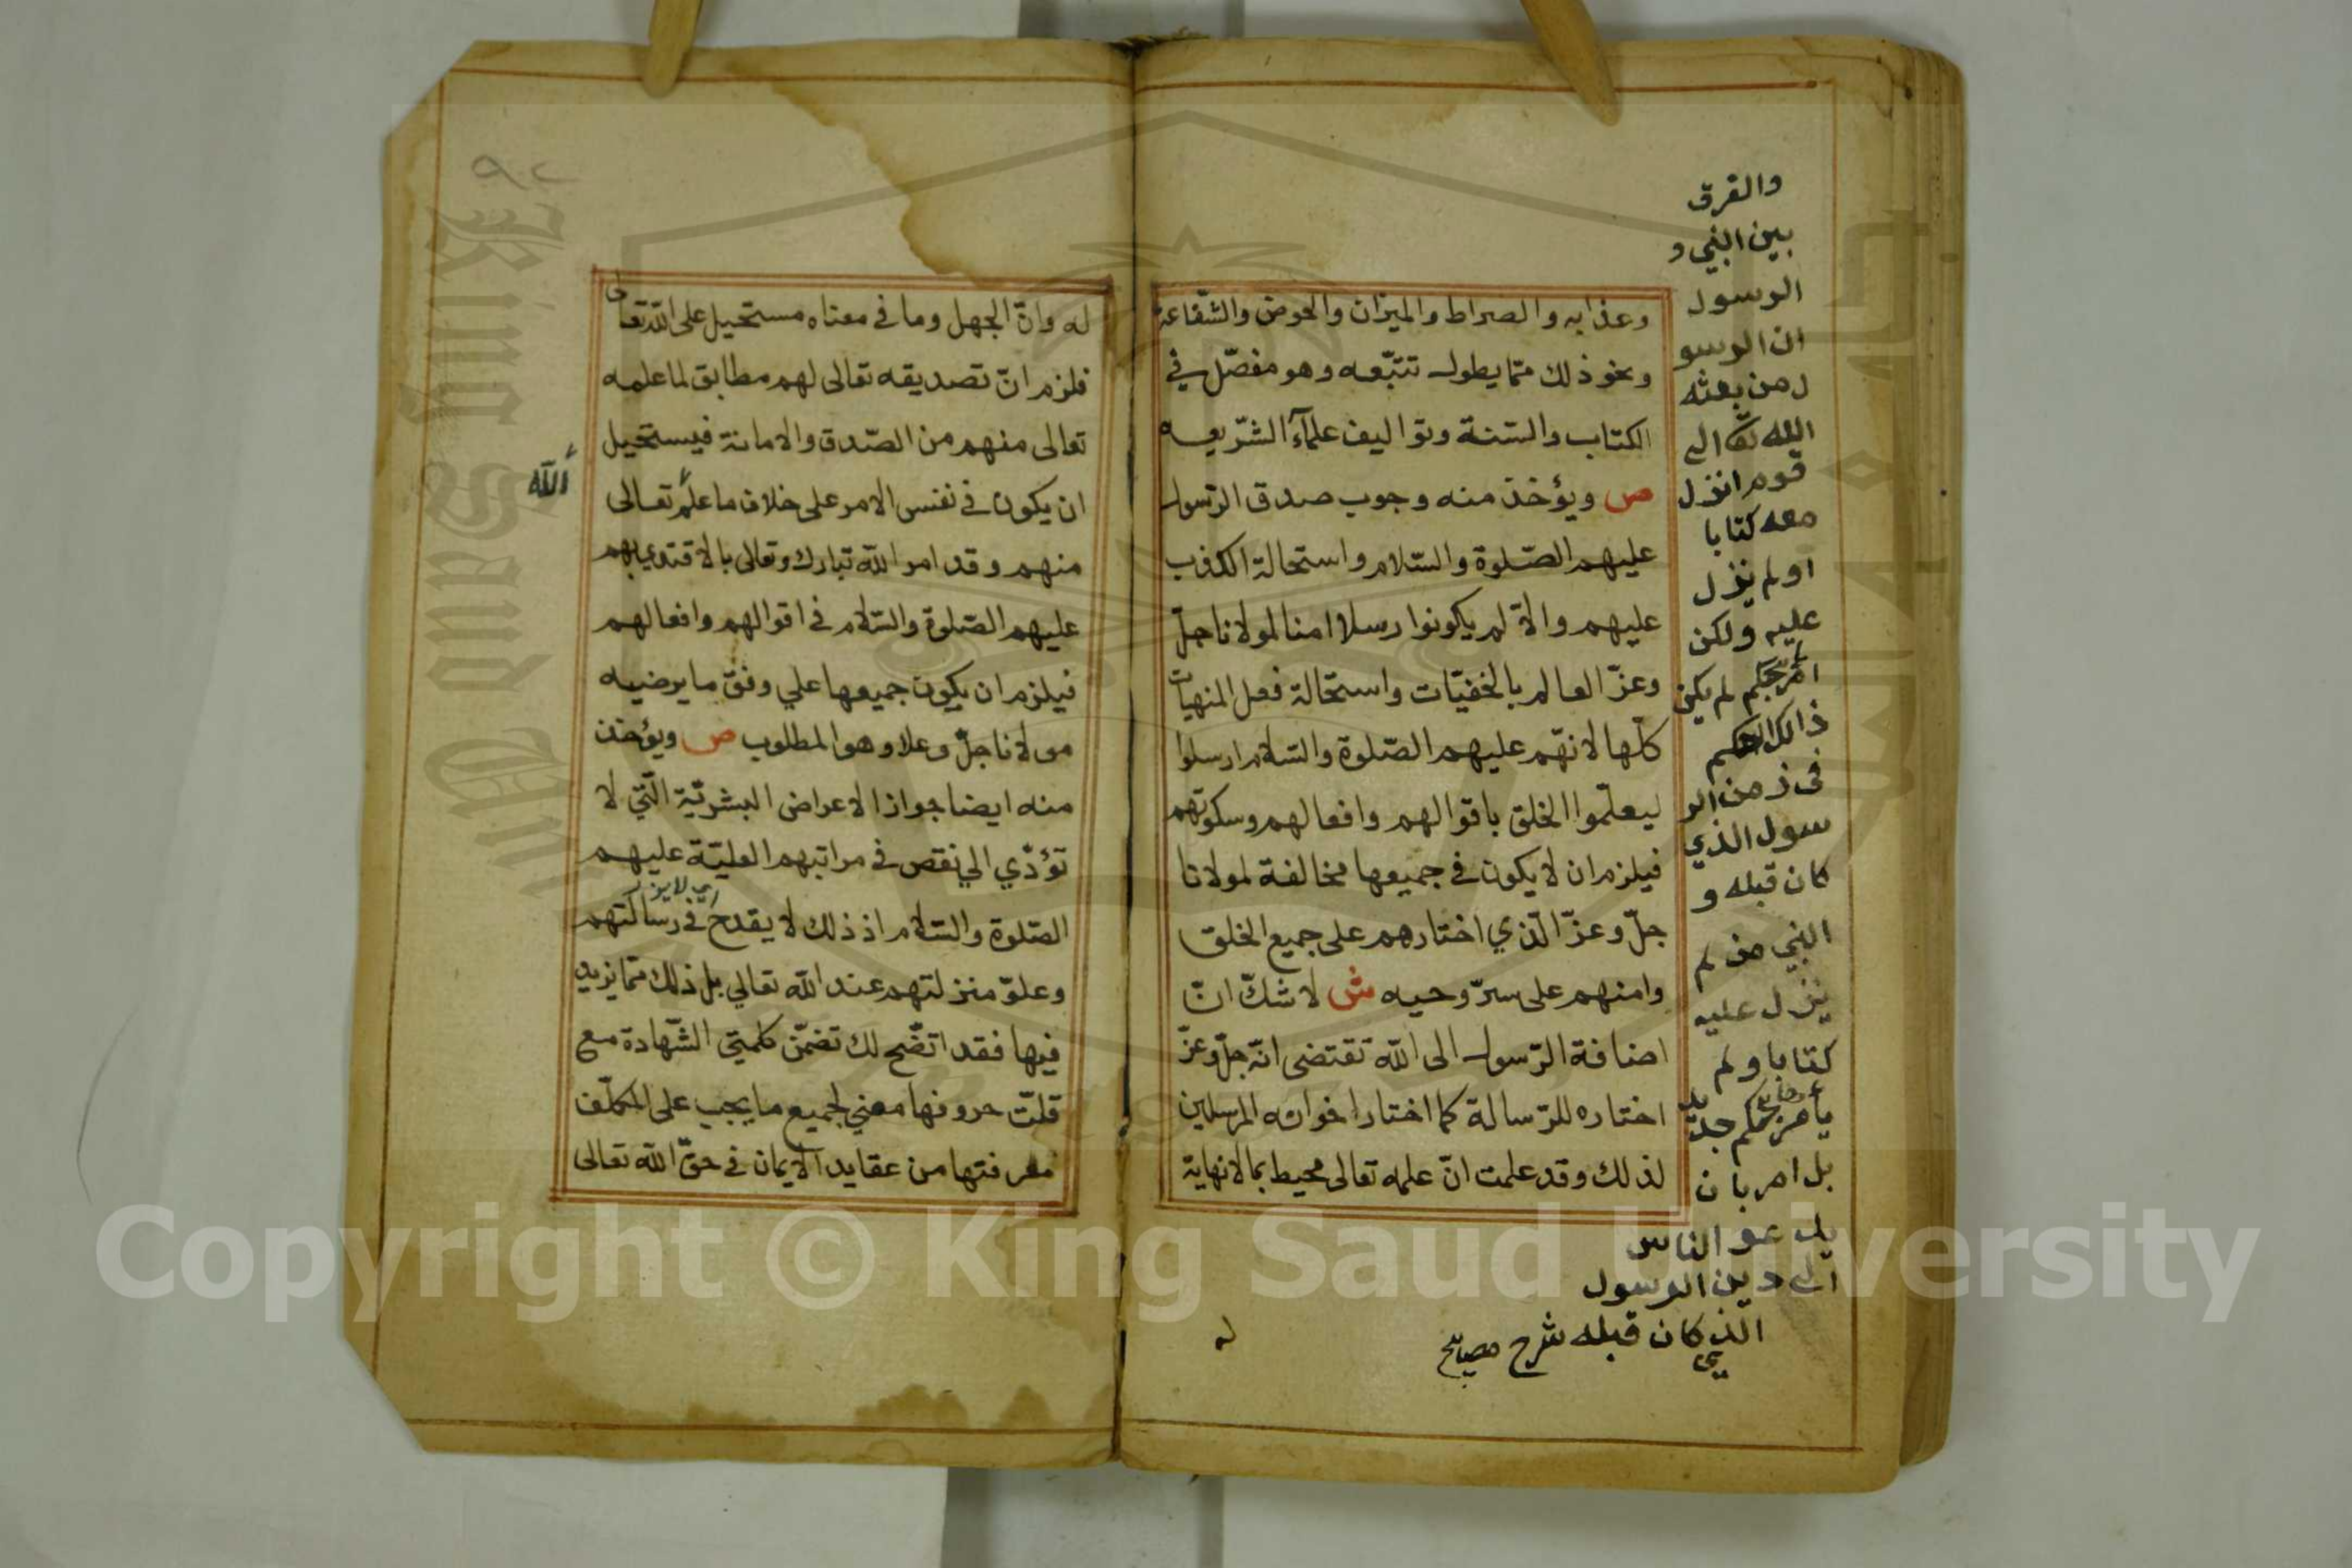 وعذابه والصراط والميزان والحوض والشّفاعة
ونحو ذلك ممّا يطول تتبّعه وهو مفصّل في
الكتاب والسّنة وتواليف علمآء الشّريعه
ص ويؤخذ منه وجوب صدق الرّسول
عليهم الصّلوة والسّلام واستحالة الكذب
عليهم والاّ لم يكونوا رسلا امنا لمولانا جلّ
وعزّ العالم بالخفيّات واستحالة فعل المنهيات
كلّها لانهّم عليهم الصّلوة والسّلام ارسلوا
ليعلّموا الخلق باقوالهم وافعالهم وسكوتهم
فيلزم ان لا يكون في جميعها مخالفة لمولانا
جلّ وعزّ الّذي اختارهم على جميع الخلق
وامنهم على سرّ وحيه ش لا شكّ انّ
اضافة الرّسول الى الله تقتضى انّه جلّ وعزّ
اختاره للرّسالة كما اختار اخوانه المرسلين
لذلك وقد علمت انّ علمه تعالى محيط بما لا نهاية
له
والفرق
بين النبي و
الرسول
ان الرسو
ل من بعثه
الله تعالى الى
قوم انزل
معه كتابا
او لم ينزل
عليه ولكن
امر بحكم لم يكن
ذالك الحكم
فى زمن الر
سول الذي
كان قبله و
النبي من لم
ينزل عليه
كتابا ولم
يأمر بحكم جديد
بل امر بان
يدعو الناس
الى دين الرسول
الذي كان قبله شرح مصابيح
٩٢
له وانّ الجهل وما في معناه مستحيل على الله تعالى
فلزم انّ تصديقه تعالى لهم مطابق لما علمه
تعالى منهم من الصّدق والامانة فيستحيل
ان يكون في نفس الامر على خلاف ما علم تعالى
الله
منهم وقد امر الله تبارك وتعالى بالاقتداء بهم
عليهم الصّلوة والسّلام في اقوالهم وافعالهم
فيلزم ان يكون جميعها علي وفق ما يرضيه
مولانا جلّ وعلا وهو المطلوب ص ويؤخذ
منه ايضا جواز الاعراض البشريّة الّتي لا
تؤدّي الي نقص في مراتبهم العليّة عليهم
الصّلوة والسّلام اذ ذلك لا يقدح في رسالتهم
وعلوّ منزلتهم عند الله تعالي بل ذلك ممّا يزيد
فيها فقد اتّضح لك تضمّن كلمتي الشّهادة مع
قلّت حروفها معني لجميع ما يجب على المكلّف
معرفتها من عقايد الايمان في حقّ الله تعالى
King Saud University
Copyright © King Saud University